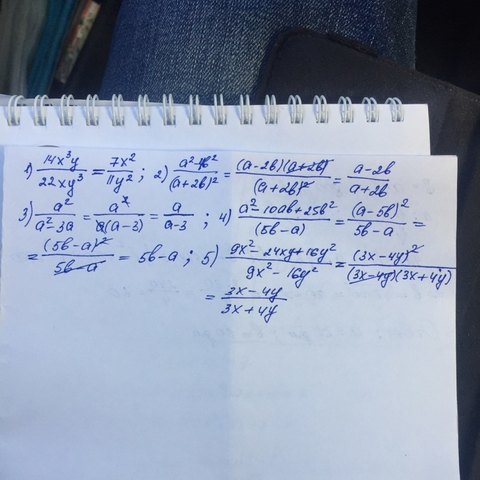 1) 14x³y/22xy³ = 7x²/11y²; 2) a²-4b²/(a+2b)² = (a-2b)(a+2b)/(a+2b)² = a-2b/a+2b
3) a²/a²-3a = a²/a(a-3) = a/a-3; 4) a²-10ab+25b²/(5b-a) = (a-5b)²/5b-a =
= (5b-a)²/5b-a = 5b-a; 5) 9x²-24xy+16y²/9x²-16y² = (3x-4y)²/(3x-4y)(3x+4y)
= 3x-4y/3x+4y